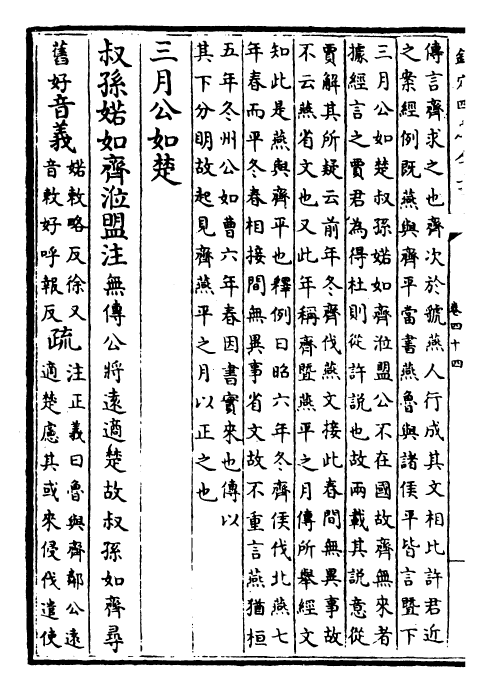 傳言齊求之也齊次於號燕人行成其文相比許君近
之案經例既燕與齊平當書燕魯與諸侯平皆言暨下
三月公如楚叔孫婼如齊涖盟公不在國故齊無來者
據經言之賈君為得杜則從許說也故兩載其說意從
賈解其所疑云前年冬齊伐燕文接此春間無異事故
不云燕省文也又此年稱齊暨燕平之月傳所舉經文
知此是燕與齊平也釋例曰昭六年冬齊侯伐北燕七
年春而平冬春相接間無異事省文故不重言燕猶桓
五年冬州公如曹六年春因書實來也傳以
其下分明故起見齊燕平之月以正之也
三月公如楚
叔孫婼如齊涖盟注無傳公將遠適楚故叔孫如齊尋
舊好音義婼敕略反徐又音敕好呼報反疏注正義曰魯與齊鄰公遠適楚慮其或來侵伐遣使
卷四十四